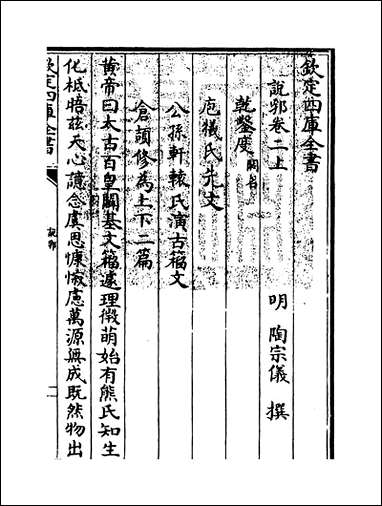 欽定四庫全書
說郛卷二上
明 陶宗儀 撰
乾鑿度 闕名
庖犧氏先文
公孫軒轅氏演古籀文
倉頡修為上下二篇
黄帝曰太古百皇闢基文籀遽理微萌始有熊氏知生
化柢晤兹天心譩念虞思慷慨慮萬源無成既然物出
欽定四庫全書
說郛